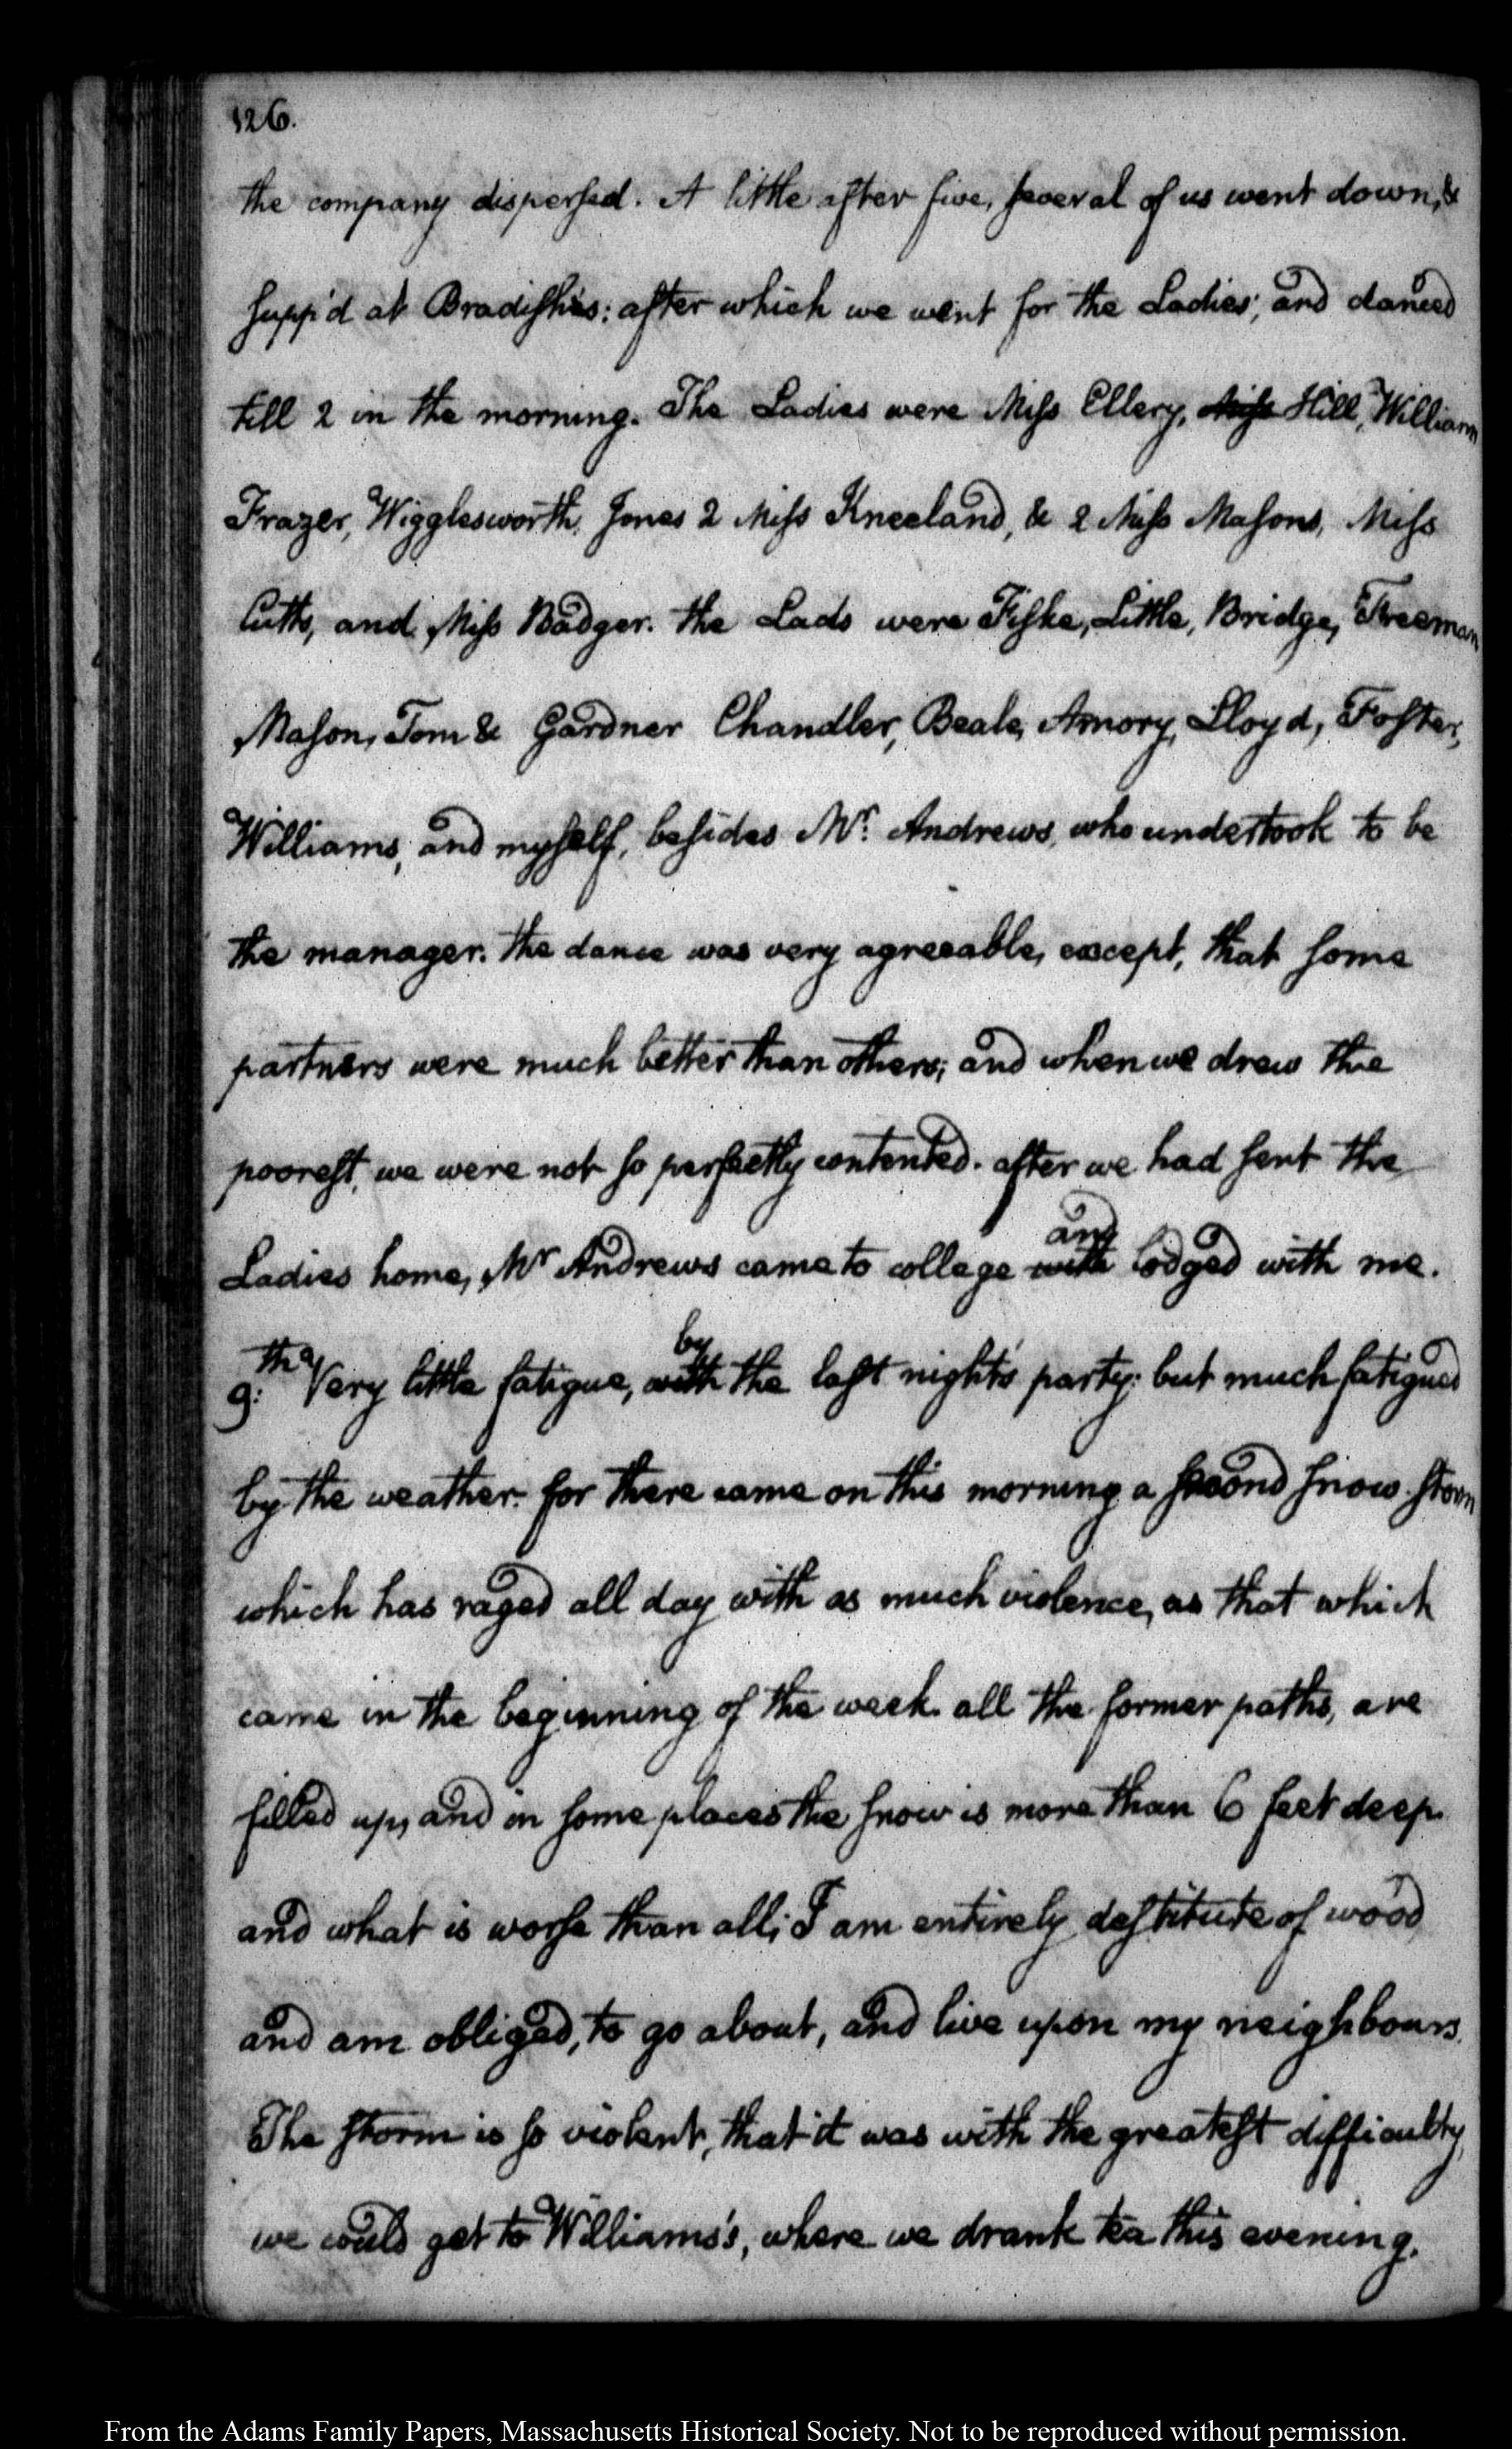 126.
the company dispersed. A little after five, several of us went down, &
supp'd at Bradish's: after which we went for the Ladies; and danced
till 2 in the morning. The Ladies were Miss Ellery, Miss Hill, William
Frazer, Wigglesworth, Jones 2 Miss Kneeland, & 2 Miss Masons, Miss
Cutts, and Miss Badger. the Lads were Fiske, Little, Bridge, Freeman
Mason, Tom & Gardner Chandler, Beale, Amory, Lloyd, Foster,
Williams, and myself, besides Mr. Andrews, who undertook to be
the manager. the dance was very agreeable, except, that some
partners were much better than others; and when we drew the
poorest, we were not so perfectly contented. after we had sent the
Ladies home, Mr Andrews came to college with and lodged with me.
9th. Very little fatigue, with by the last night's party: but much fatigued
by the weather. for there came on this morning a second snow storm
which has raged all day with as much violence, as that which
came in the beginning of the week. all the former paths, are
filled up, and in some places the snow is more than 6 feet deep.
and what is worse than all; I am entirely destitute of wood
and am obliged, to go about, and live upon my neighbours.
The storm is so violent, that it was with the greatest difficulty,
we could get to Williams's, where we drank tea this evening.
From the Adams Family Papers, Massachusetts Historical Society. Not to be reproduced without permission.